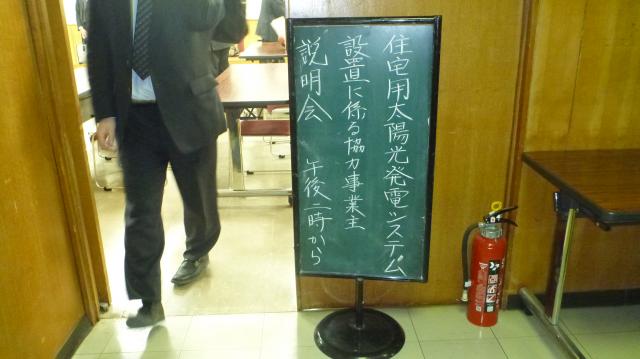 住宅用太陽光発電システム
設置に係る協力事業主
説明会 午後二時から